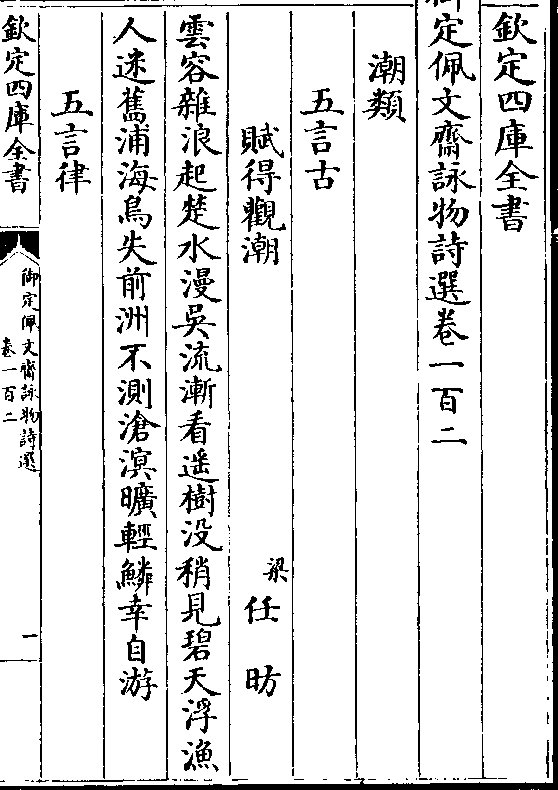 欽定四庫全書
御定佩文齋詠物詩選卷一百二
潮類
五言古
賦得觀潮
梁
任昉
雲容雜浪起楚水漫吳流漸看遥樹没稍見碧天浮漁
人迷舊浦海鳥失前洲不測滄溟曠輕鱗幸自游
五言律
欽定四庫全書
御定佩文齋詠物詩選
卷一百二
一